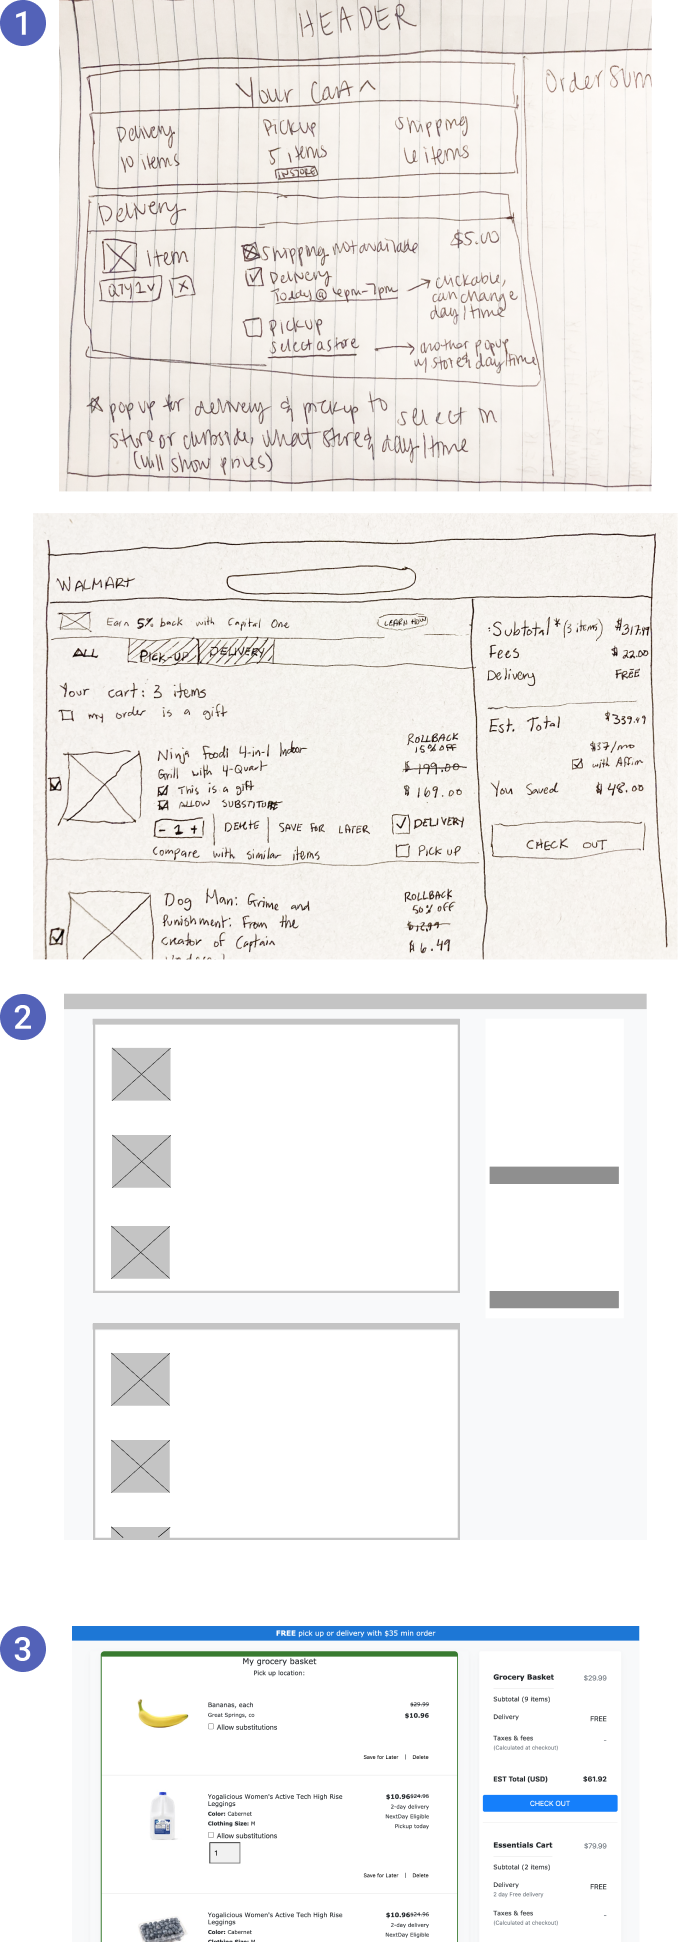 1
HEADER
Your Cart ^
Order Sum
Delivery
10 items
Pickup
5 items
INSTORE
Shipping
6 items
Delivery
Item
QTY 1 v
x
Shipping not available
$5.00
Delivery
Today @ 4pm-7pm
→ clickable,
can change
day/time
Pickup
select a store
→ another popup
w/ store & day/time
* popup for delivery & pickup to select in
store or curbside, what store & day/time
(will show prices)
WALMART
Earn 5% back with Capital One
LEARN HOW
ALL
PICK-UP
DELIVERY
Your cart: 3 items
my order is a gift
Ninja Foodi 4-in-1 Indoor
Grill with 4-Quart
This is a gift
ALLOW SUBSTITUTE
- 1 +
DELETE
SAVE FOR LATER
Compare with similar items
ROLLBACK
15% OFF
$199.00
$169.00
DELIVERY
PICK UP
Dog Man: Grime and
Punishment: From the
creator of Captain
ROLLBACK
50% OFF
$12.99
$6.49
Subtotal* (3 items) $317.49
Fees $22.00
Delivery FREE
Est. Total $339.49
$37/mo
with Affirm
You Saved $48.00
CHECK OUT
2
3
FREE pick up or delivery with $35 min order
My grocery basket
Pick up location:
Bananas, each
$29.99
Great Springs, co
$10.96
Allow substitutions
Save for Later | Delete
Yogalicious Women's Active Tech High Rise
Leggings
Color: Cabernet
Clothing Size: M
Allow substitutions
1
$10.96 $24.96
2-day delivery
NextDay Eligible
Pickup today
Save for Later | Delete
Yogalicious Women's Active Tech High Rise
Leggings
Color: Cabernet
Clothing Size: M
$10.96 $24.96
2-day delivery
NextDay Eligible
Grocery Basket $29.99
Subtotal (9 items)
Delivery FREE
Taxes & fees -
(Calculated at checkout)
EST Total (USD) $61.92
CHECK OUT
Essentials Cart $79.99
Subtotal (2 items)
Delivery FREE
2 day Free delivery
Taxes & fees -
(Calculated at checkout)